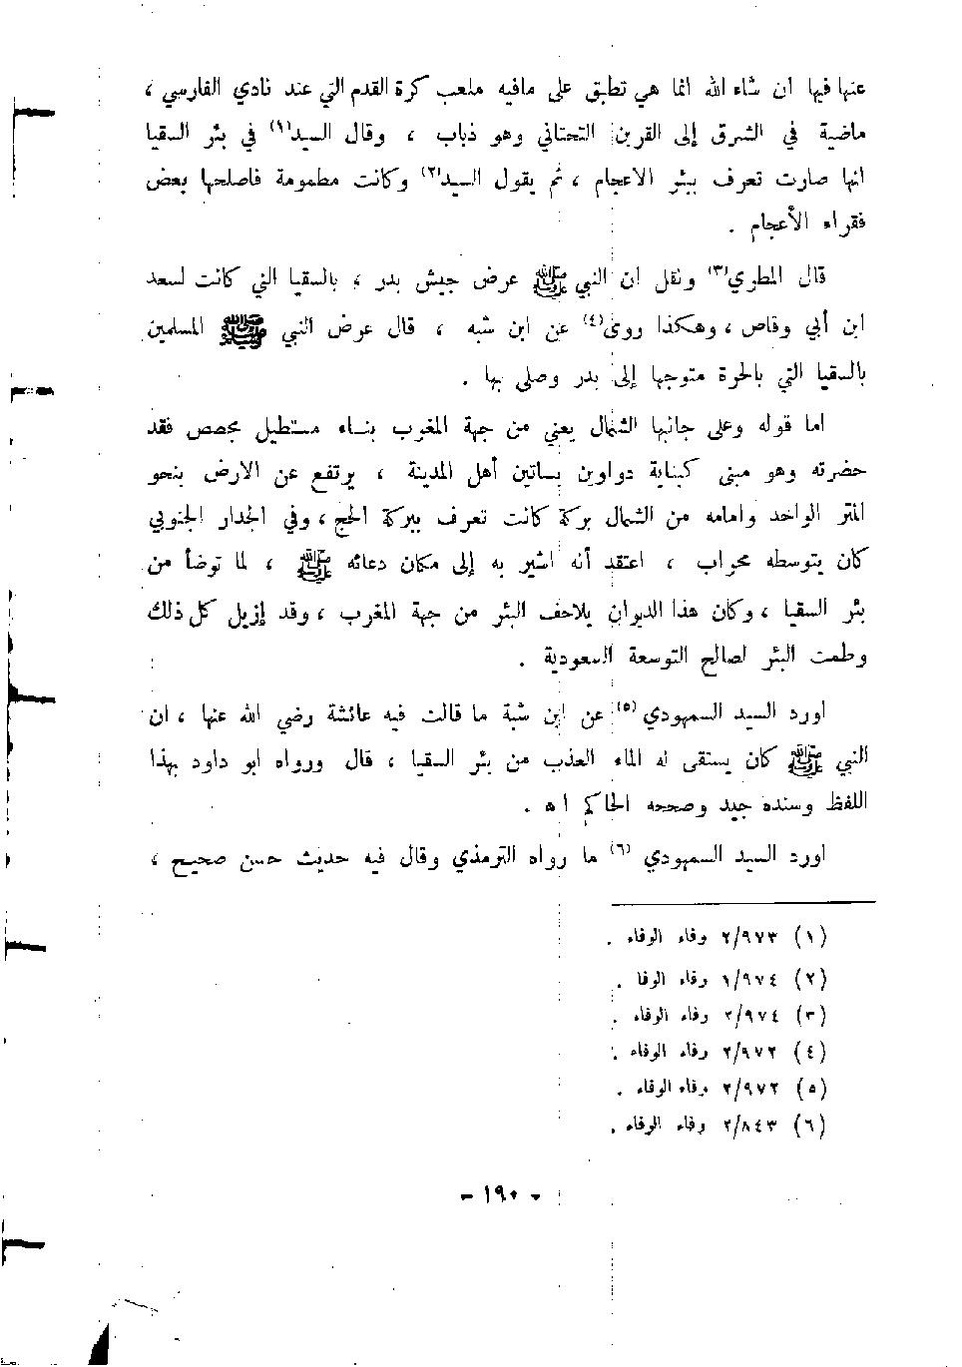 عنها فيها ان شاء الله انما هي تطبق على مافيه ملعب كرة القدم التي عند نادي الفارسي ،
ماضية في الشرق إلى القرين التحتاني وهو ذباب ، وقال السيد(١) في بئر السقيا
انها صارت تعرف ببئر الاعجام ، ثم يقول السيد(٢) وكانت مطمومة فاصلحها بعض
فقراء الأعجام .
قال المطري(٣) ونقل ان النبي ﷺ عرض جيش بدر ، بالسقيا التي كانت لسعد
ابن أبي وقاص ، وهكذا روى(٤) عن ابن شبه ، قال عرض النبي ﷺ المسلمين
بالسقيا التي بالحرة متوجها إلى بدر وصلى بها .
اما قوله وعلى جانبها الشمال يعني من جهة المغرب بناء مستطيل مجصص فقد
حضرته وهو مبنى كبناية دواوين بساتين أهل المدينة ، يرتفع عن الارض بنحو
المتر الواحد وامامه من الشمال بركة كانت تعرف ببركة الحج ، وفي الجدار الجنوبي
كان يتوسطه محراب ، اعتقد أنه اشير به إلى مكان دعائه ﷺ ، لما توضأ من
بئر السقيا ، وكان هذا الديوان يلاحف البئر من جهة المغرب ، وقد إزيل كل ذلك
وطمت البئر لصالح التوسعة السعودية .
اورد السيد السمهودي (٥) عن ابن شبة ما قالت فيه عائشة رضي الله عنها ، ان
النبي ﷺ كان يستقى له الماء العذب من بئر السقيا ، قال ورواه ابو داود بهذا
اللفظ وسنده جيد وصححه الحاكم اه .
اورد السيد السمهودي (٦) ما رواه الترمذي وقال فيه حديث حسن صحيح ،
(١) ٢/٩٧٣ وفاء الوفاء .
(٢) ١/٩٧٤ وفاء الوفا .
(٣) ٢/٩٧٤ وفاء الوفاء .
(٤) ٢/٩٧٢ وفاء الوفاء .
(٥) ٢/٩٧٢ وفاء الوفاء .
(٦) ٢/٨٤٣ وفاء الوفاء .
- ١٩٠ -